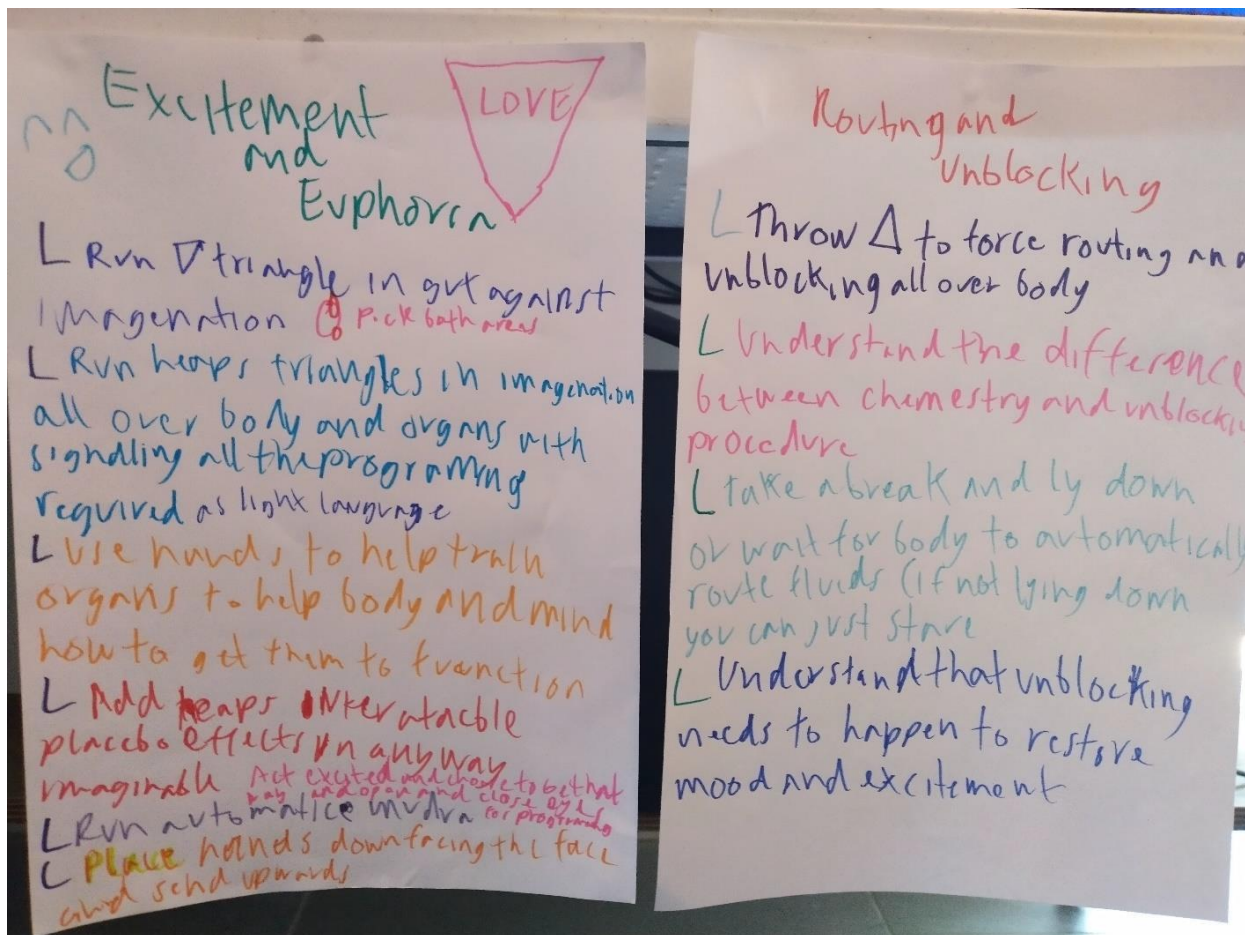 Excitement
and
Euphoria
LOVE
Run ▽ triangle in gut against
imagenation pick both areas
Run heaps triangles in imagenation
all over body and organs with
signalling all the programing
required as light language
use hands to help train
organs to help body and mind
how to get them to function
Add heaps
placebo effects in anyway
imaginable Act excited and choose to be that
way and open and close eyes
Run automatice mudra for programing
Place hands down facing the face
and send upwards
Routing and
unblocking
Throw △ to force routing and
unblocking all over body
Understand the difference
between chemestry and unblocking
procedure
take a break and ly down
or wait for body to automatically
route fluids (if not lying down
you can just stare
Understand that unblocking
needs to happen to restore
mood and excitement